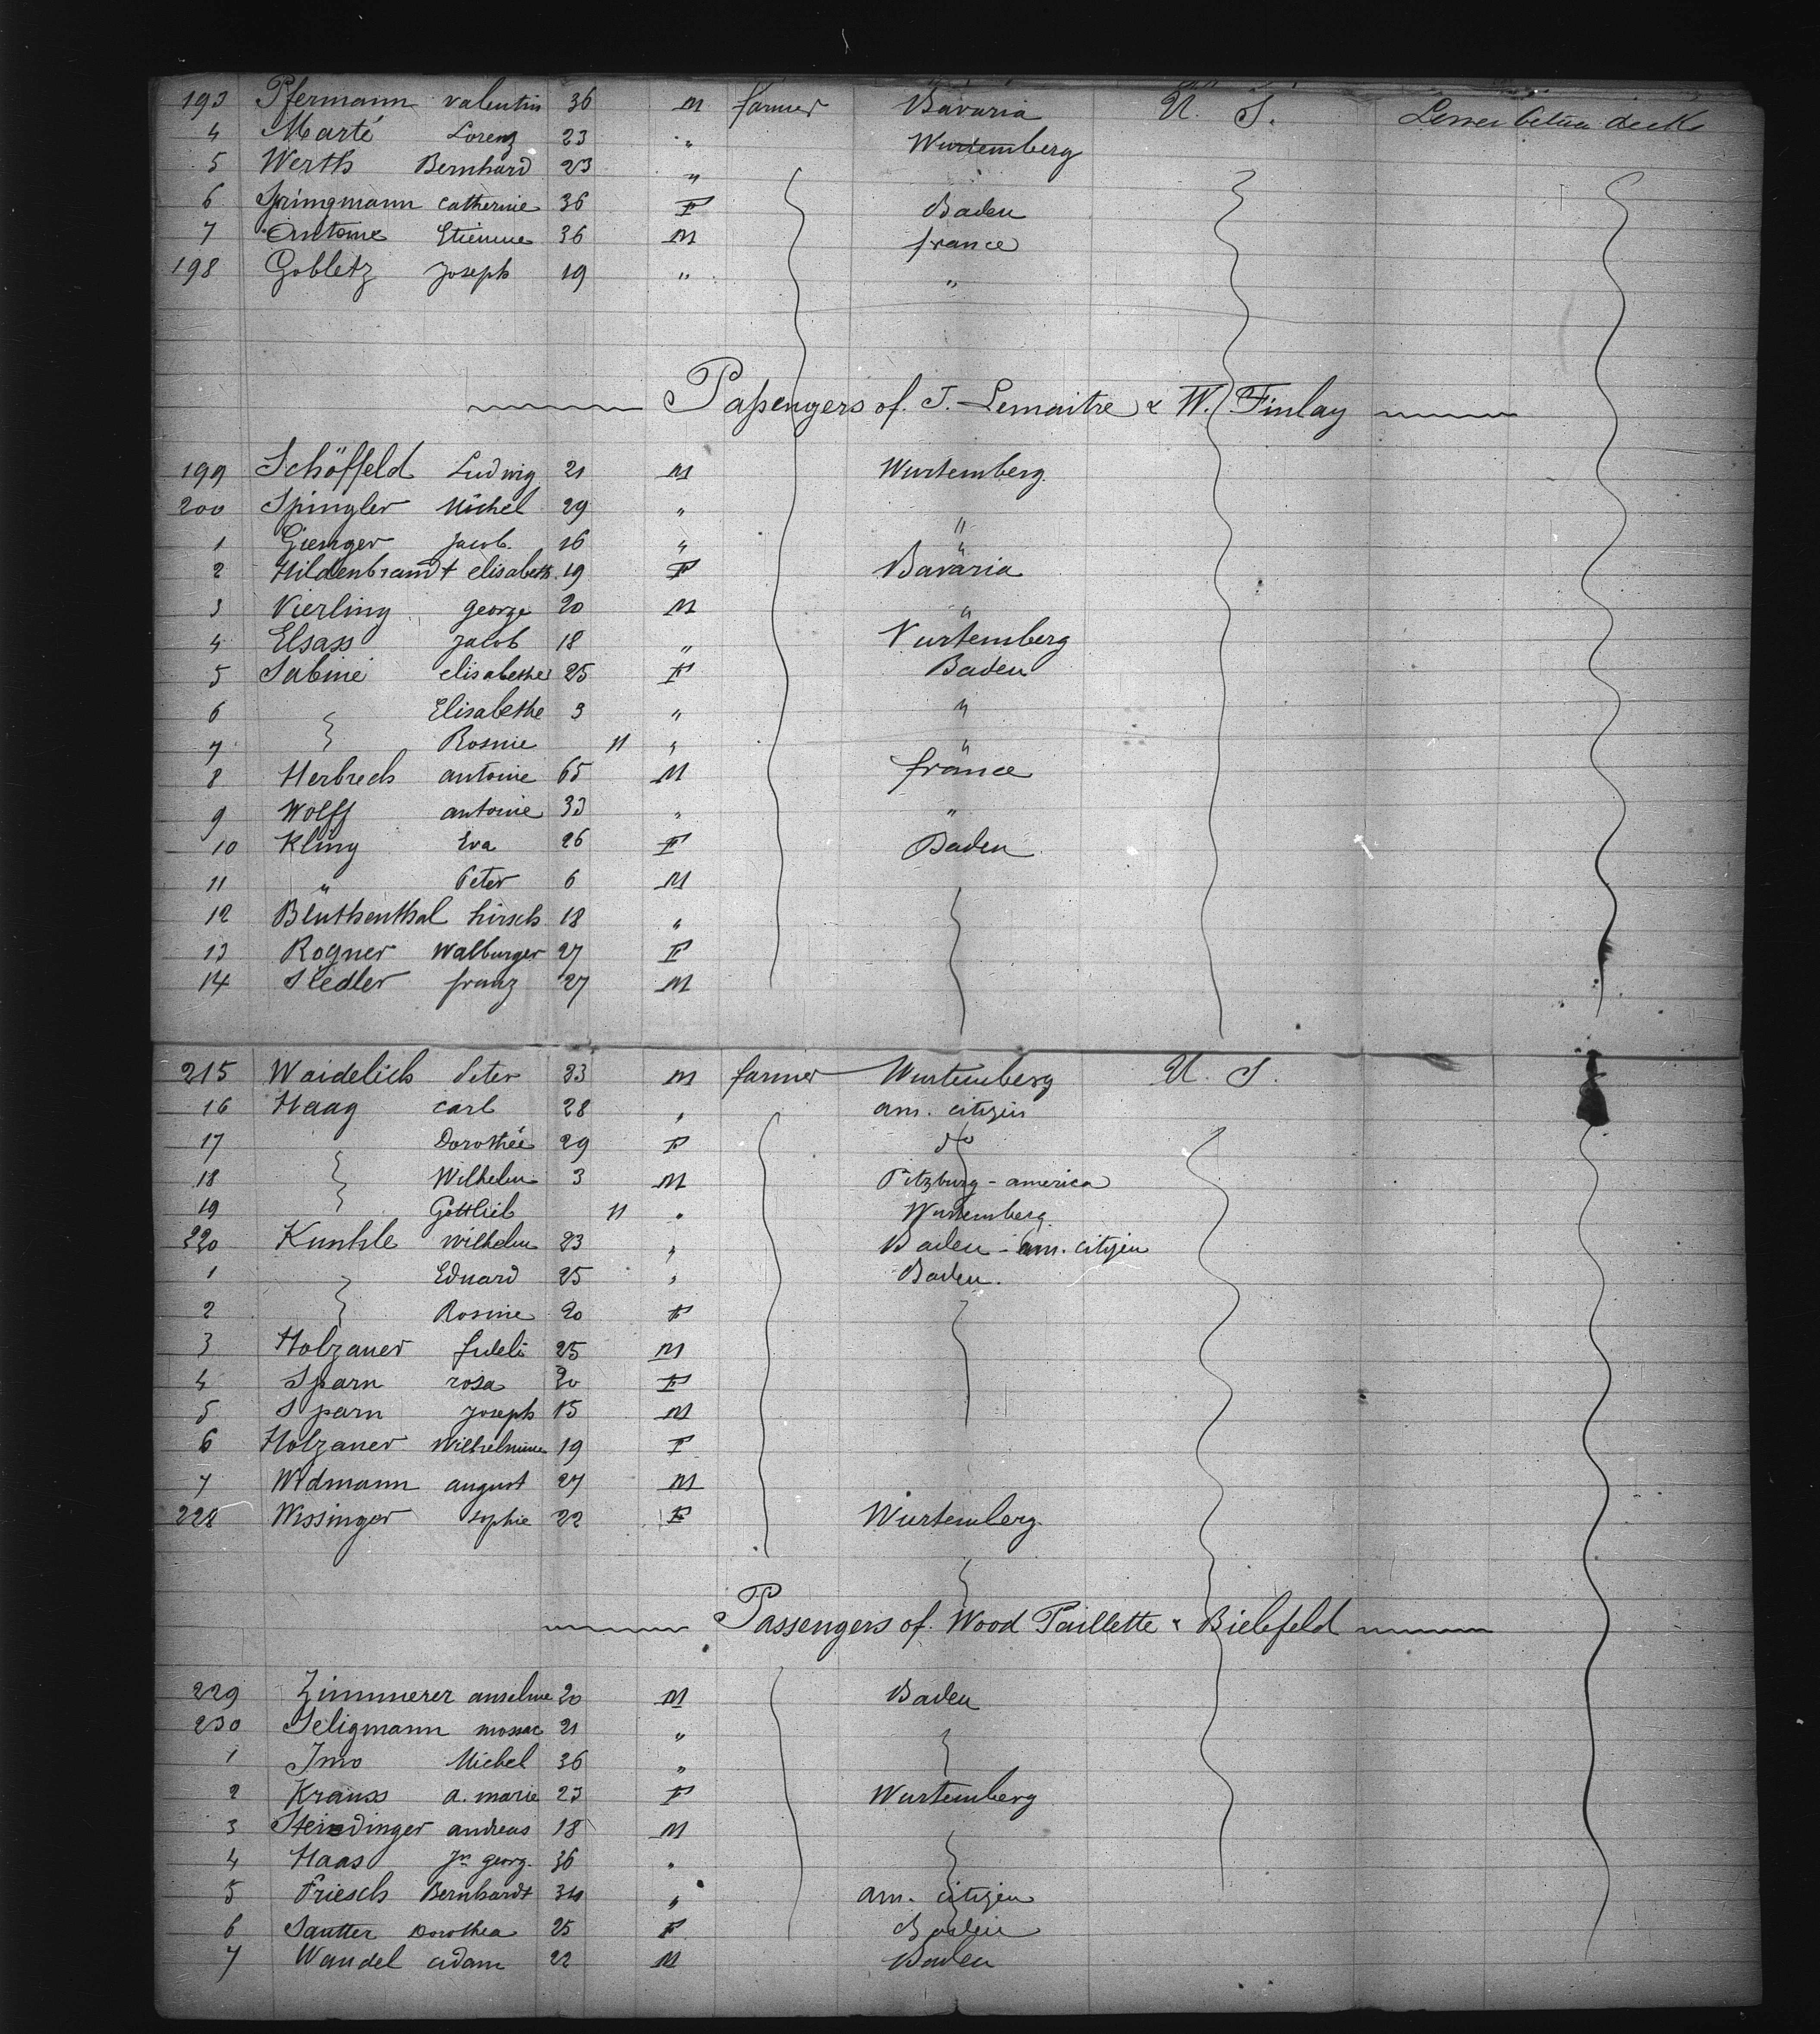 193 Pfermann Valentin 36 M farmer Bavaria U. S. Lower betwn deck
4 Marté Lorenz 23 " Wurtemberg
5 Werth Bernhard 23 "
6 Springmann Catherine 36 F Baden
7 Antoine Etienne 36 M france
198 Gobletz Joseph 19 " "
Passengers of J. Lemaitre & W. Finlay
199 Schöffeld Ludwig 21 M Wurtemberg
200 Spingler Michel 29 " "
1 Gienger Jacob. 16 " "
2 Hildenbrandt elisabeth 19 F Bavaria
3 Vierling george 20 M "
4 Elsass Jacob 18 " Vurtemberg
5 Sabine elisabethe 25 F Baden
6 Elisabethe 3 " "
7 Rosine 11 " "
8 Herbrech antoine 65 M france
9 Wolff antoine 33 " "
10 Kling Eva 26 F Baden
11 " Peter 6 M
12 Bluthenthal hirsch 18 "
13 Rogner Walburger 27 F
14 Siedler franz 27 M
215 Waidelich Peter 23 M farmer Wurtemberg U. S.
16 Haag Carl 28 " am. citizen
17 Dorothée 29 F do
18 Wilhelm 3 M Pitzburg - america
19 Gottlieb 11 " Wurtemberg
220 Kunkle Wilhelm 23 " Baden - am. citizen
1 Eduard 25 " Baden.
2 Rosine 20 F
3 Holzauer fideli 25 M
4 Sparn rosa 20 F
5 Sparn Joseph 15 M
6 Holzauer Wilhelmine 19 F
7 Widmann august 27 M
228 Wissinger Sophie 22 F Wurtemberg.
Passengers of Wood Paillette & Bielefeld
229 Zimmerer anselme 20 M Baden
230 Seligmann 21 "
1 Imo Michel 36 "
2 Krauss a. marie 23 F Wurtemberg
3 Steindinger andreas 18 M
4 Haas Jn georg. 36 "
5 Friesch Bernhardt 34 " am. citizen
6 Sautter Dorothea 25 F Baden
7 Wandel adam 22 M Baden